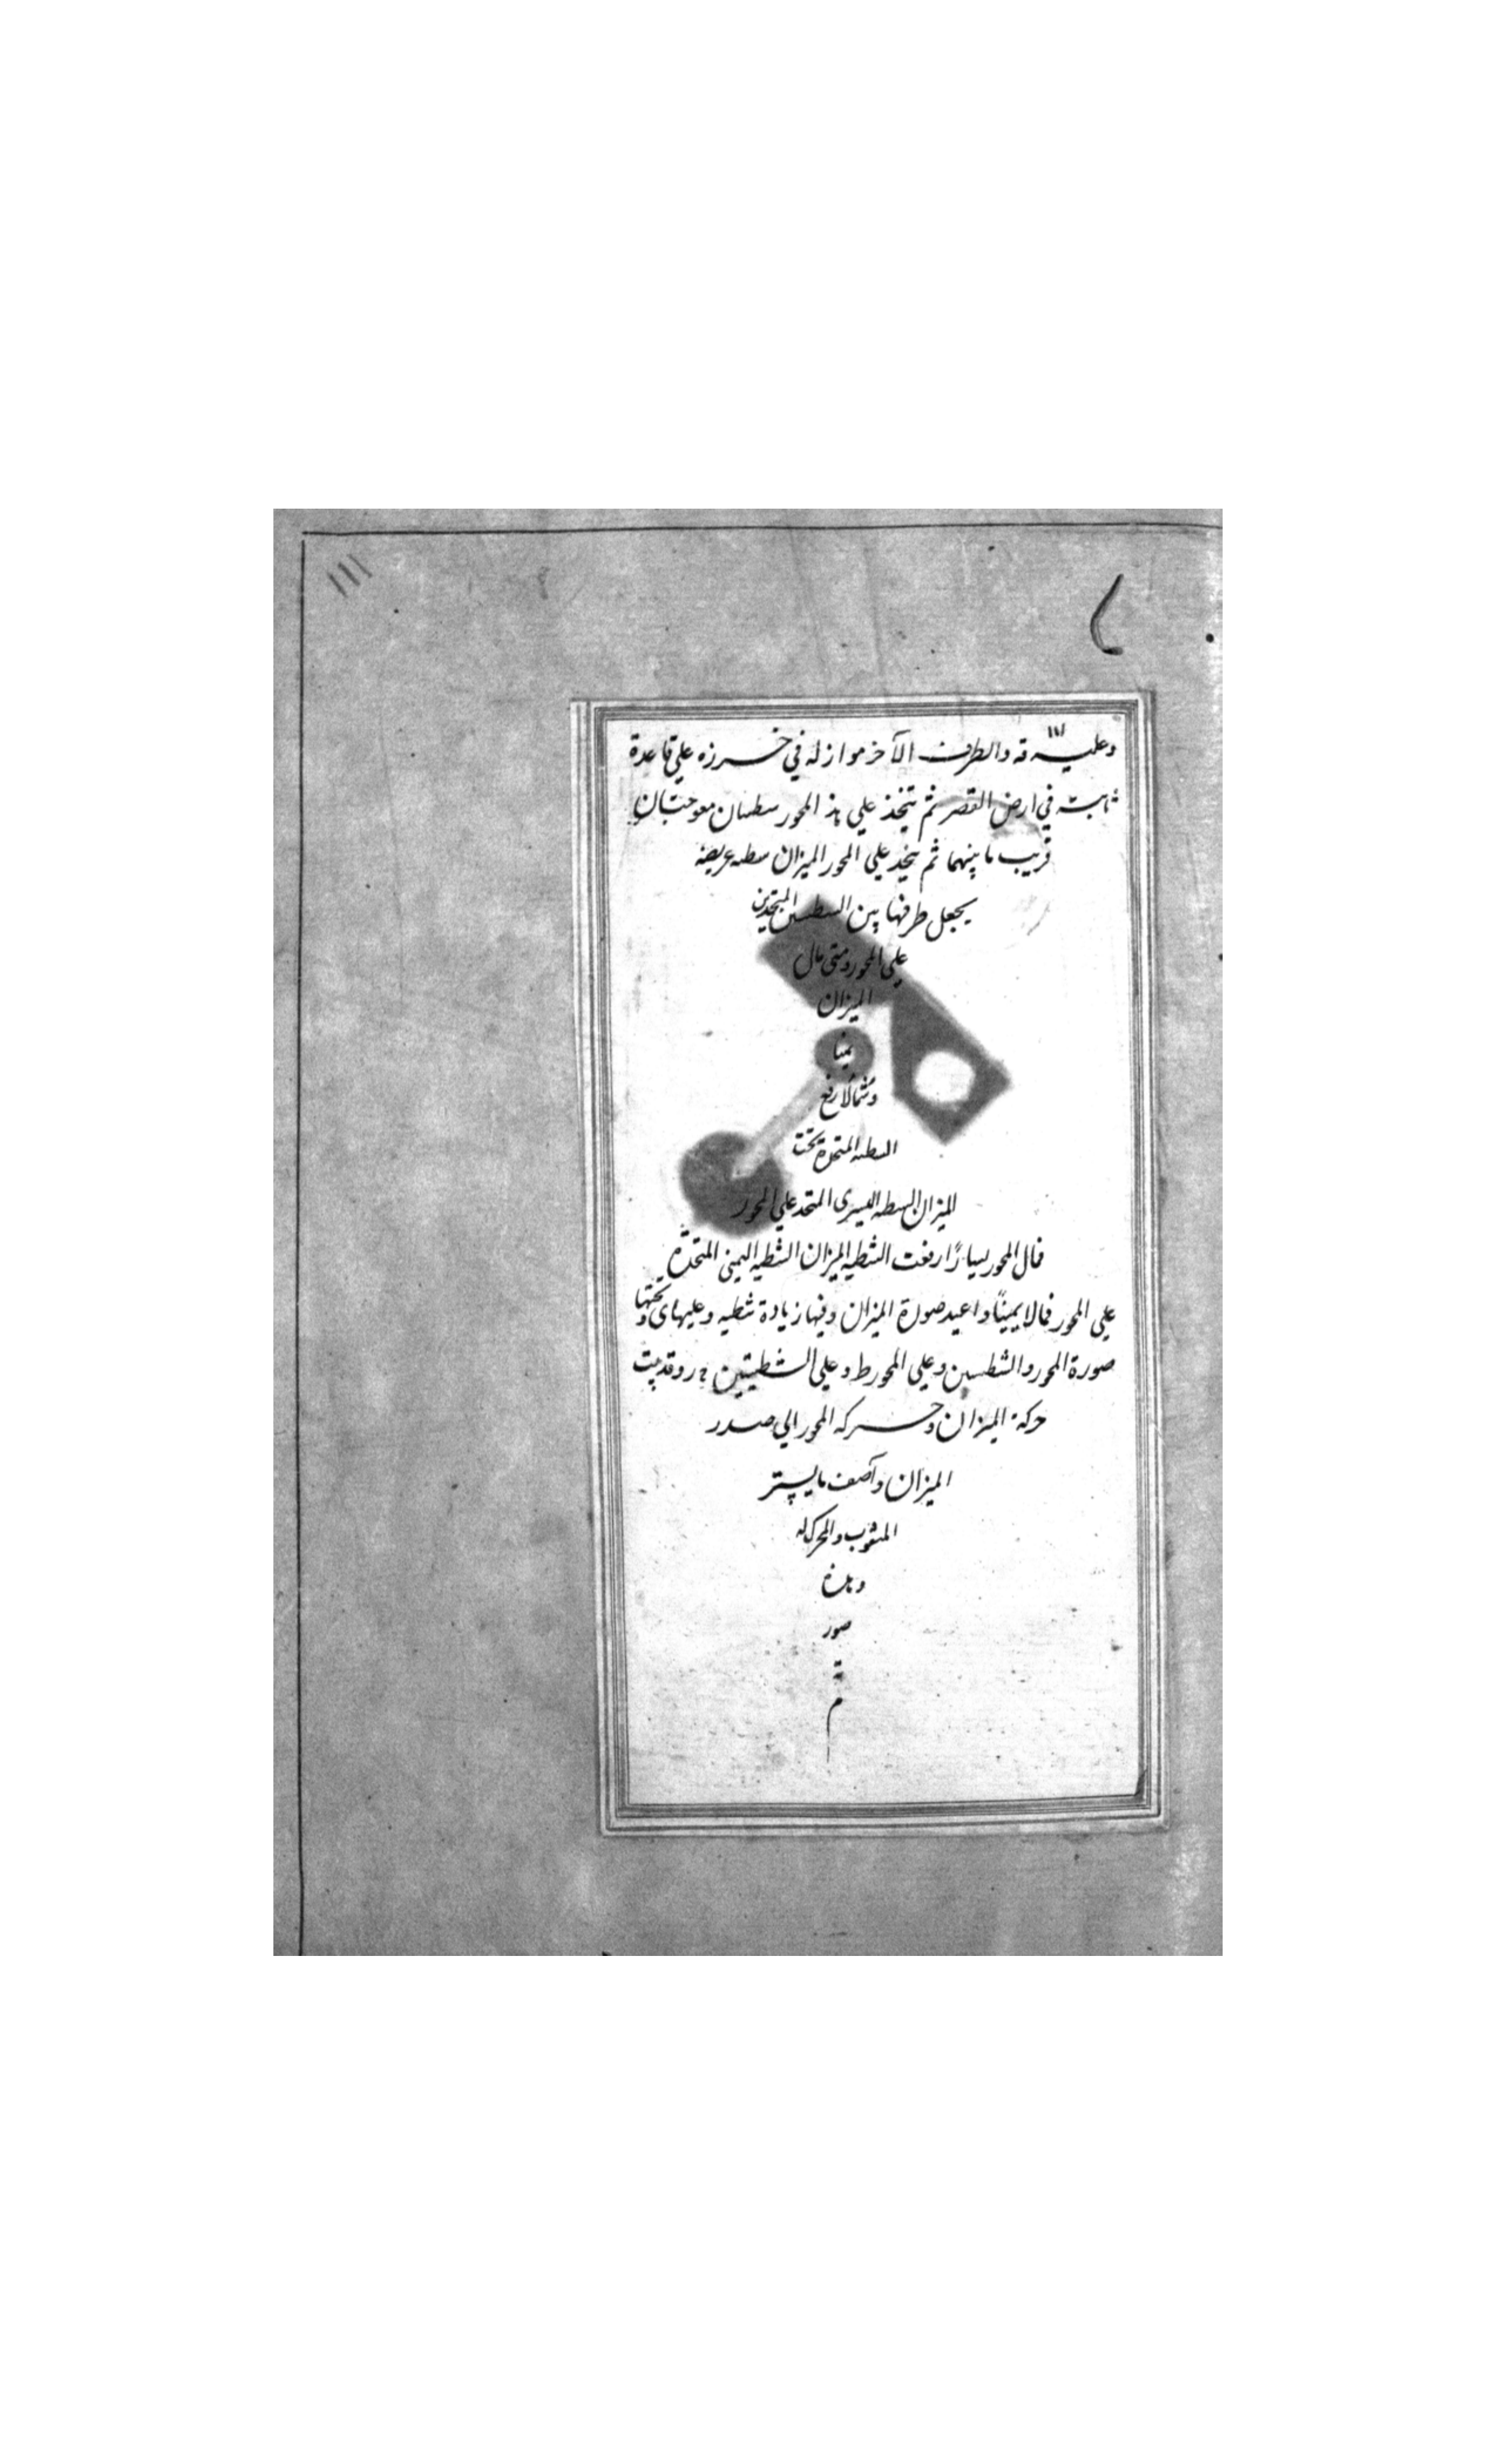 ١١١
وعليـــه قه والطرف الآخر موازله في خـــرزه علي قاعدة
ثابتـه في ارض القصر ثم يتخذ علي هذ المحور سطىىان معوجتان
قريب ما بينهما ثم يتخذ علي المحور الميزان سطىه عريضه
يجعل طرفها بين السطىىىن المتخذىن
علي المحور ومتي مال
الميزان
يمينا
وشمالا رفع
السطىه المتخذة تحت
الميزان السطىه اليسرى المتخد علي المحور
فمال المحور يسارًا رفعت الشطيه الميزان الشطيه اليمنى المتخذة
علي المحور فمالا يمينًا واعيد صورة الميزان وفيها زيادة شطيه وعليها ى وتحتها
صورة المحور والشطىىىن وعلي المحور ط وعلى الشطيتين ر وقد ىىت
حركة الميزان وحـــركه المحور الي صدر
الميزان واصف ما يستر
المثقوب والمحرك له
وهذه
صور
ته
م